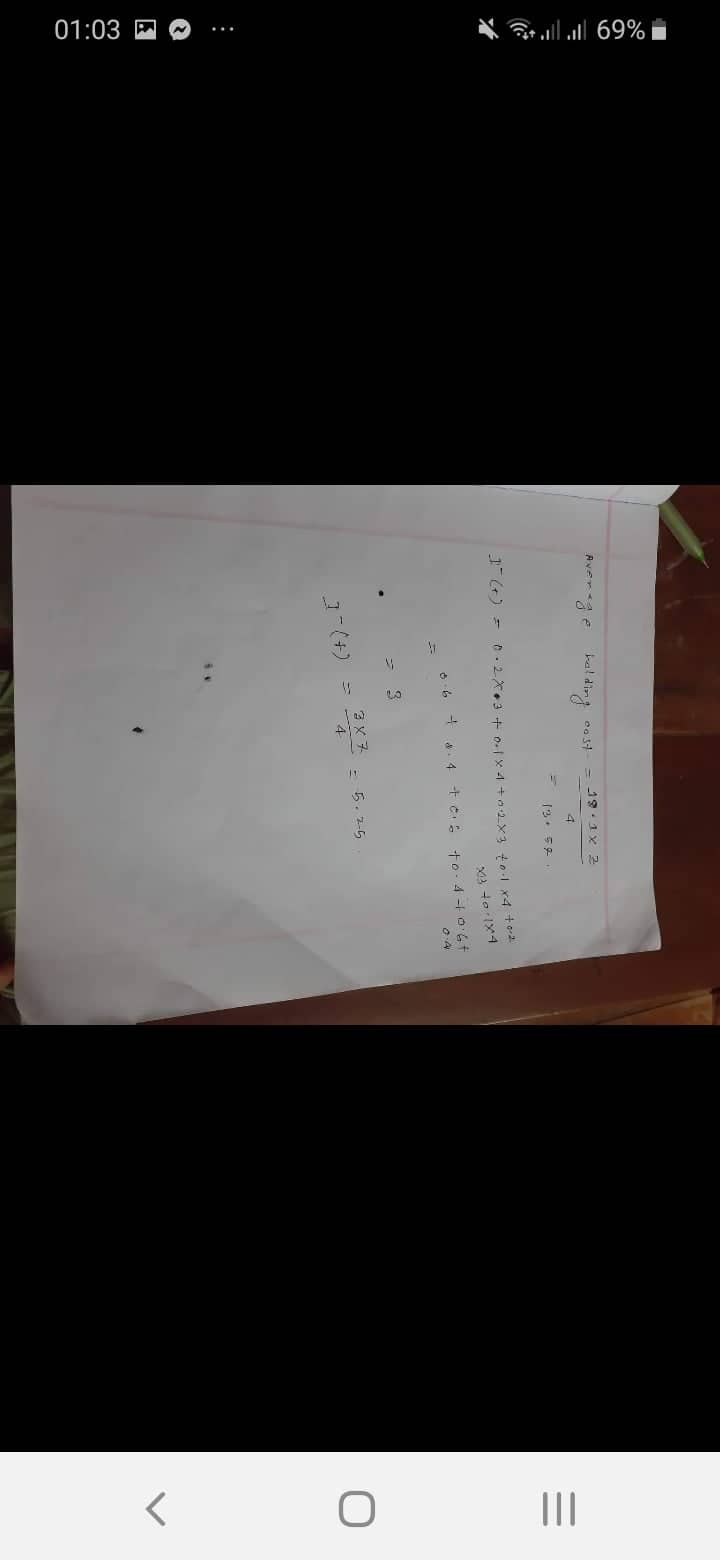 01:03 ... 69%
Average holding cost = 18.1 x 3
4
= 13.58.
I⁻(t) = 0.2 x 3 + 0.1 x 4 + 0.2 x 3 + 0.1 x 4 + 0.2
x3 + 0.1x4
= 0.6 + 0.4 + 0.6 + 0.4 + 0.6 +
0.4
= 3
I⁻(t) = 3x7 = 5.25.
4